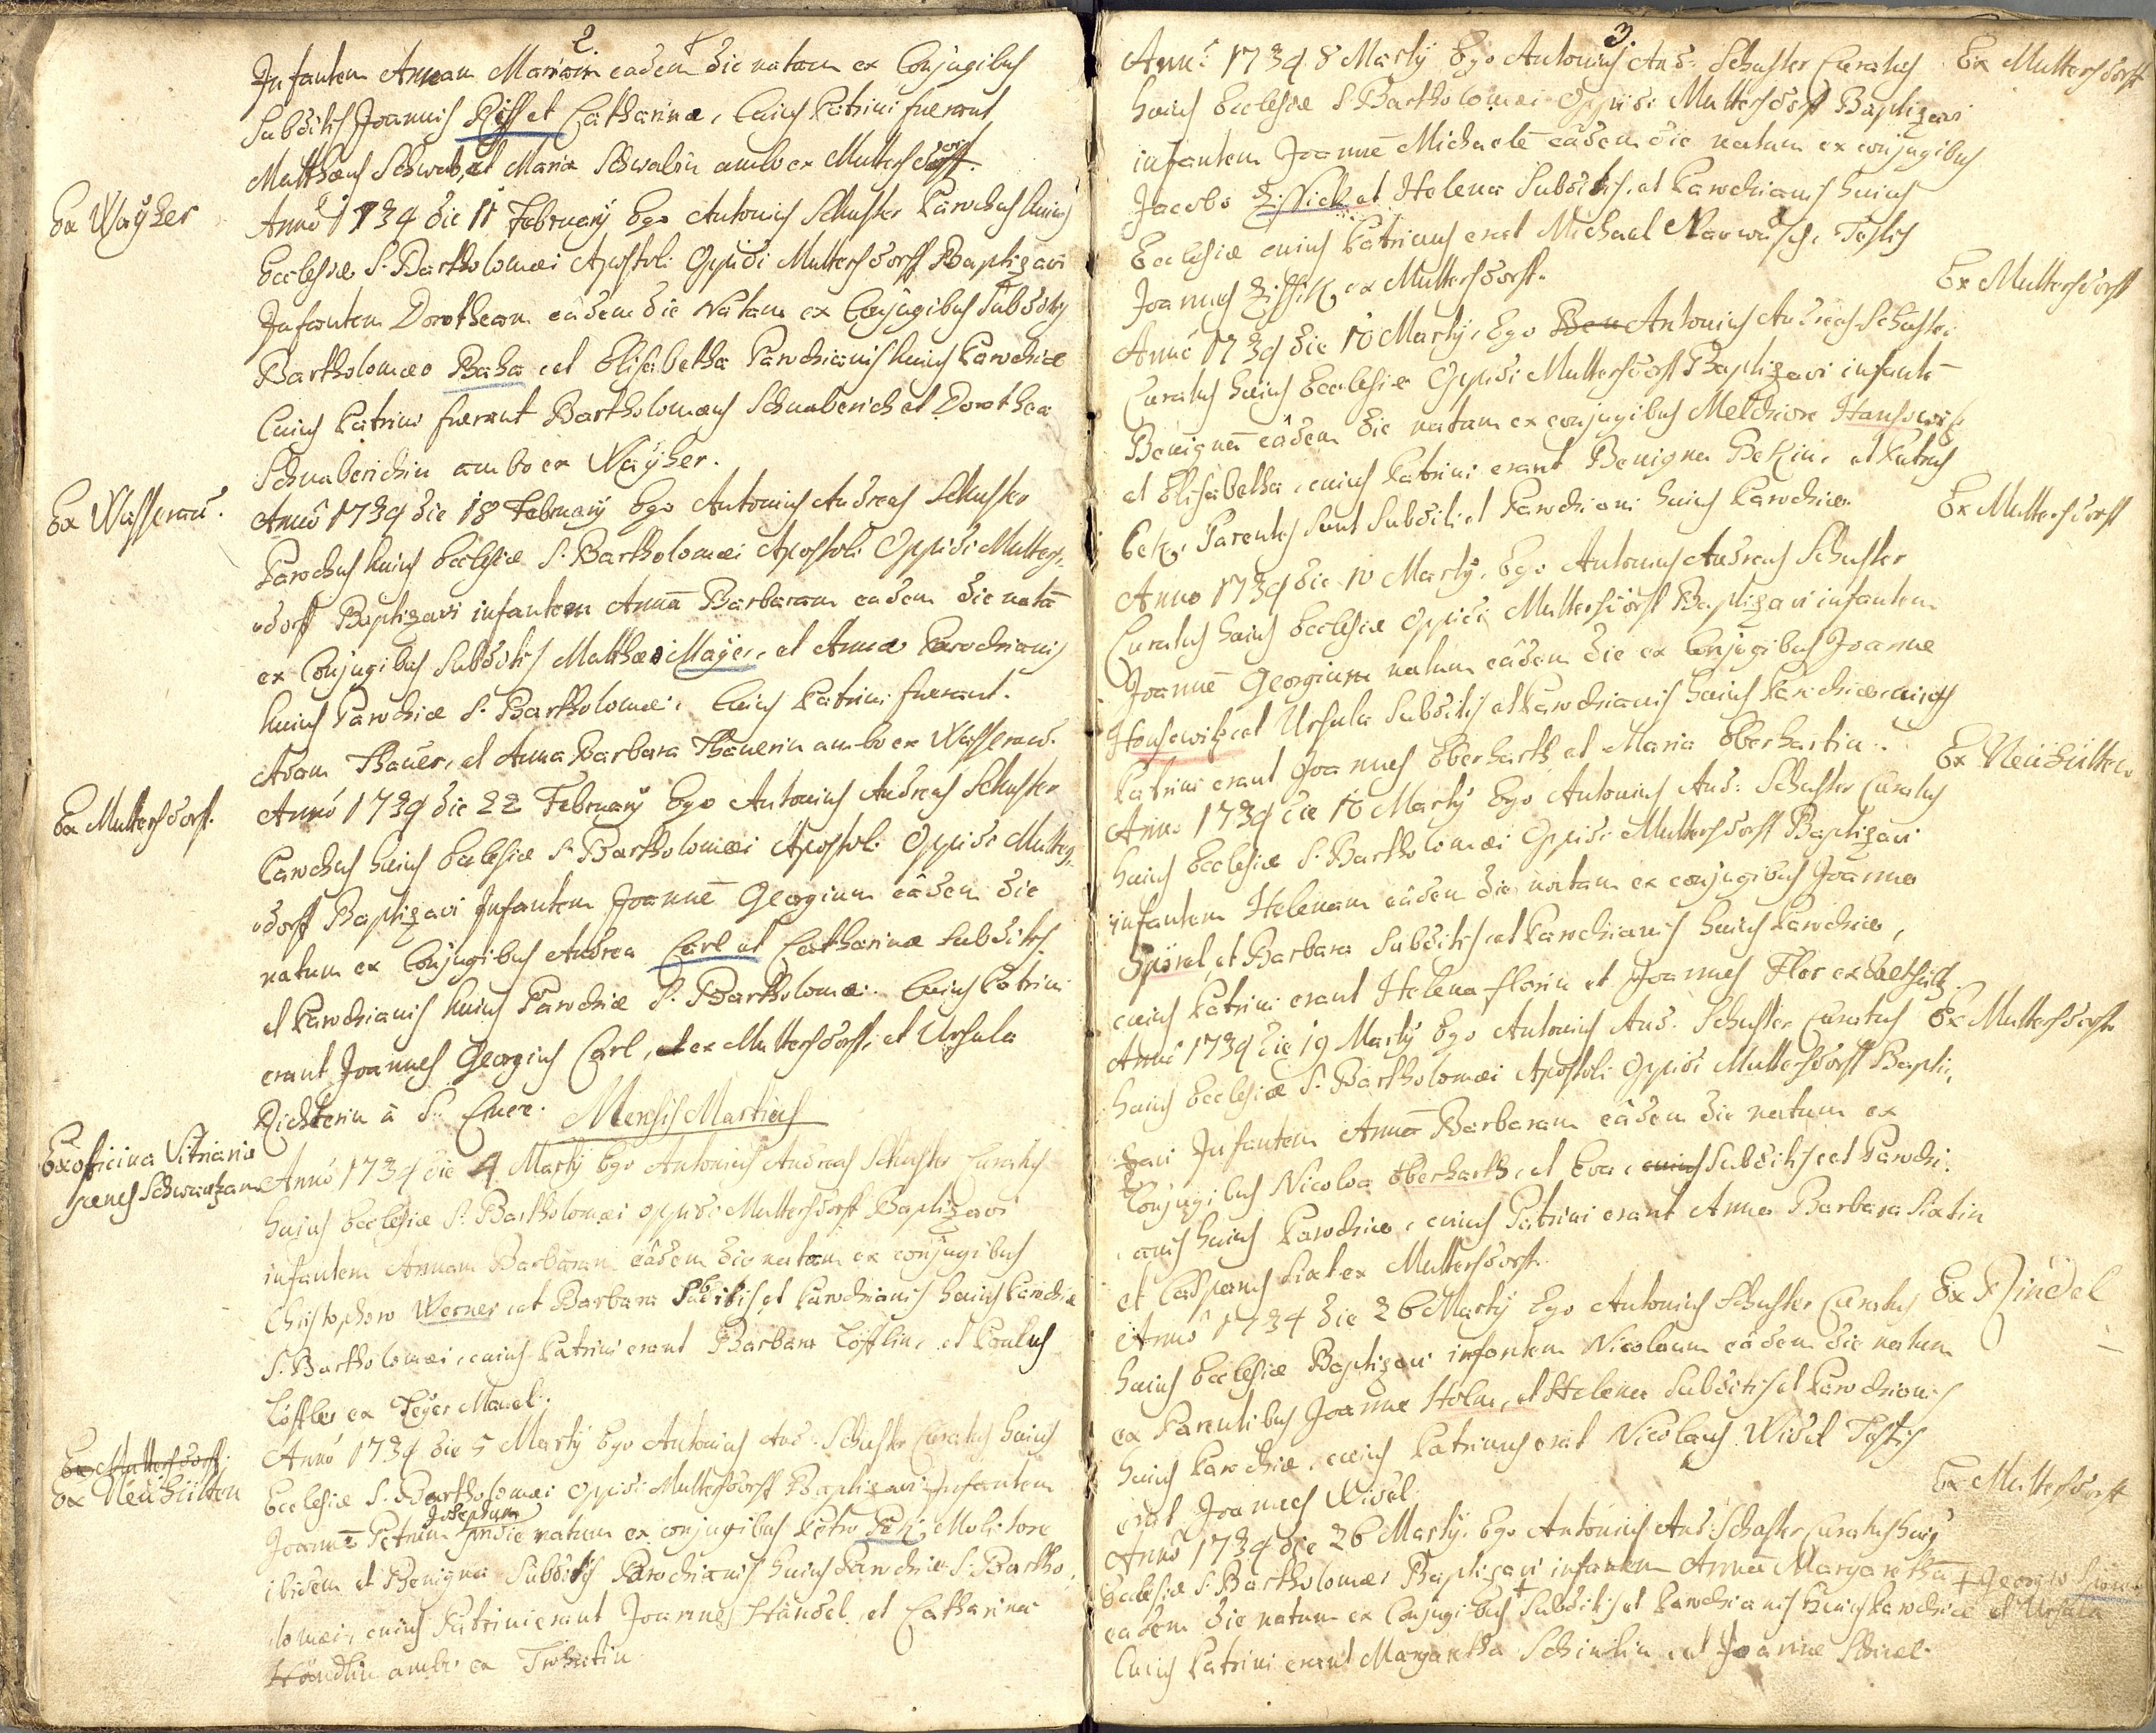 2.
Infantem Annam Mariam eadem die natam ex Conjugibus
Subditis Joannis Riff et Catharinæ, Cuius Patrini fuerant
Matthæus Schwab, et Maria Schwabin ambo ex Muttersdorff.
Ex Waÿher
Annô 1734 die 11 February Ego Antonius Schuster Parochus huius
Ecclesiæ S. Bartholomæi Apostoli Oppidi Muttersdorff Baptizavi
Infantem Dorotheam eâdem die Natam ex Conjugibus Subditis
Bartholomæo Baha et Elisabetha Parochianis huius Parochiæ
Cuius Patrini fuerant Bartholomæus Schnaberich et Dorothea
Schnaberichin ambo ex Waÿher.
Ex Wasserau.
Annô 1734 die 18 February Ego Antonius Andreas Schuster
Parochus huius Ecclesiæ S. Bartholomæi Apostoli Oppidi Mutters-
dorff Baptizavi infantem Annā Barbaram eadem die natā
ex Conjugibus Subditis Matthæo Maÿer, et Anna Parochianis
huius Parochiæ S. Bartholomæi, Cuius Patrini fuerant.
Adam Bauer, et Anna Barbara Bauerin ambo ex Wasserau.
Ex Muttersdorf.
Annô 1734 die 22 February Ego Antonius Andreas Schuster
Parochus huius Ecclesiæ S. Bartholomæi Apostoli Oppidi Mutters-
dorff Baptizavi Infantem Joannē Georgium eâdem die
natum ex Conjugibus Andrea Carl et Catharina Subditis
et Parochianis huius Parochiæ S. Bartholomæi. Cuius Patrini
erant Joannes Georgius Carl, et ex Muttersdorff, et Ursula
Richterin à S. Cruce. Mensis Martius
Ex officina Vitriaria
penes Schwarzam
Annô 1734 die 4 Martÿ Ego Antonius Andreas Schuster Curatus
huius Ecclesiæ S. Bartholomæi oppidi Muttersdorff Baptizavi
infantem Annam Barbaram eâdem die natam ex conjugibus
Christophoro Werner et Barbara Subditis et Parochianis huius Parochiæ
S. Bartholomæi, cuius Patrini erant Barbara Löfflin, et Paulus
Löffler ex
Annô 1734 die 5 Martÿ Ego Antonius And: Schuster Curatus huius
Ex Muttersdorff.
Ex Neühütten
Ecclesiæ S. Bartholomæi oppidi Muttersdorff Baptizavi Infantem
Josephum
Joannē Petrum die natum ex conjugibus Petro Molitore
ibidem et Benigna Subditis Parochianis huius Parochiæ S. Bartho-
lomæi, cuius Patrini erant Joannes Händel, et Catharina
Händlin ambo ex
3.
Annô 1734 8 Martÿ Ego Antonius And: Schuster Curatus
Ex Muttersdorff
huius Ecclesiæ S. Bartholomæi Oppidi Muttersdorff Baptizavi
infantem Joannē Michaelē eâdem die natum ex conjugibus
Jacobo Zissick et Helena Subditis, et Parochianis huius
Ecclesiæ cuius Patrinus erat Michael Testis
Joannes Zissik ex Muttersdorff.
Ex Muttersdorff
Annô 1734 die 10 Martÿ, Ego Ben Antonius Andreas Schuster
Curatus huius Ecclesiæ Oppidi Muttersdorff Baptizavi infantē
Benignā eâdem die natam ex conjugibus Melchiore Hansowiz
et Elisabetha, cuius Patrini erant Benigna Bekin, et
Bek. Parentes sunt Subditi et Parochiani huius Parochiæ.
Ex Muttersdorff
Anno 1734 die 10 Martÿ, Ego Antonius Andreas Schuster
Curatus huius Ecclesiæ Oppidi Muttersdorff Baptizavi infantem
Joannē Georgium natum eâdem die ex Conjugibus Joanne
Honsowitz et Ursula Subditis et Parochianis huius Parochiæ, cuius
Patrini erant Joannes Eberharth et Maria Eberhartin.
Ex Neühütten
Anno 1734 die 10 Martÿ Ego Antonius And: Schuster Curatus
huius Ecclesiæ S. Bartholomæi Oppidi Muttersdorff Baptizavi
infantem Helenam eâdem die natam ex conjugibus Joanne
et Barbara Subditis, et Parochianis huius Parochiæ,
cuius Patrini erant Helena Florin et Joannes Flor ex
Annô 1734 die 19 Martÿ Ego Antonius And: Schuster Curatus
Ex Muttersdorff
huius Ecclesiæ S. Bartholomæi Apostoli Oppidi Muttersdorff Bapti-
zavi Infantem Annā Barbaram eâdem die natam ex
Conjugibus Nicolao Eberharth, et Eva, cuius Subditis et Parochi-
anis huius Parochiæ, cuius Patrini erant Anna Barbara Sixtin
et Casparus Sixt ex Muttersdorff.
Annô 1734 die 26 Martÿ Ego Antonius Schuster Curatus
Ex Rindel
huius Ecclesiæ Baptizavi infantem Nicolaum eâdem die natum
ex Parentibus Joanne Holm, et Helena Subditis et Parochianis
huius Parochiæ, cuius Patrinus erat Nicolaus Widel Testis
erat Joannes Widel.
Ex Muttersdorff
Annô 1734 die 26 Martÿ. Ego Antonius And: Schuster Curatus huius
Ecclesiæ S. Bartholomæi Baptizavi infantem Annā Margarethā + Georgio
eadem die natam ex Conjugibus + Subditis et Parochianis huius Parochiæ et Ursula
Cuius Patrini erant Margaretha et Joanne